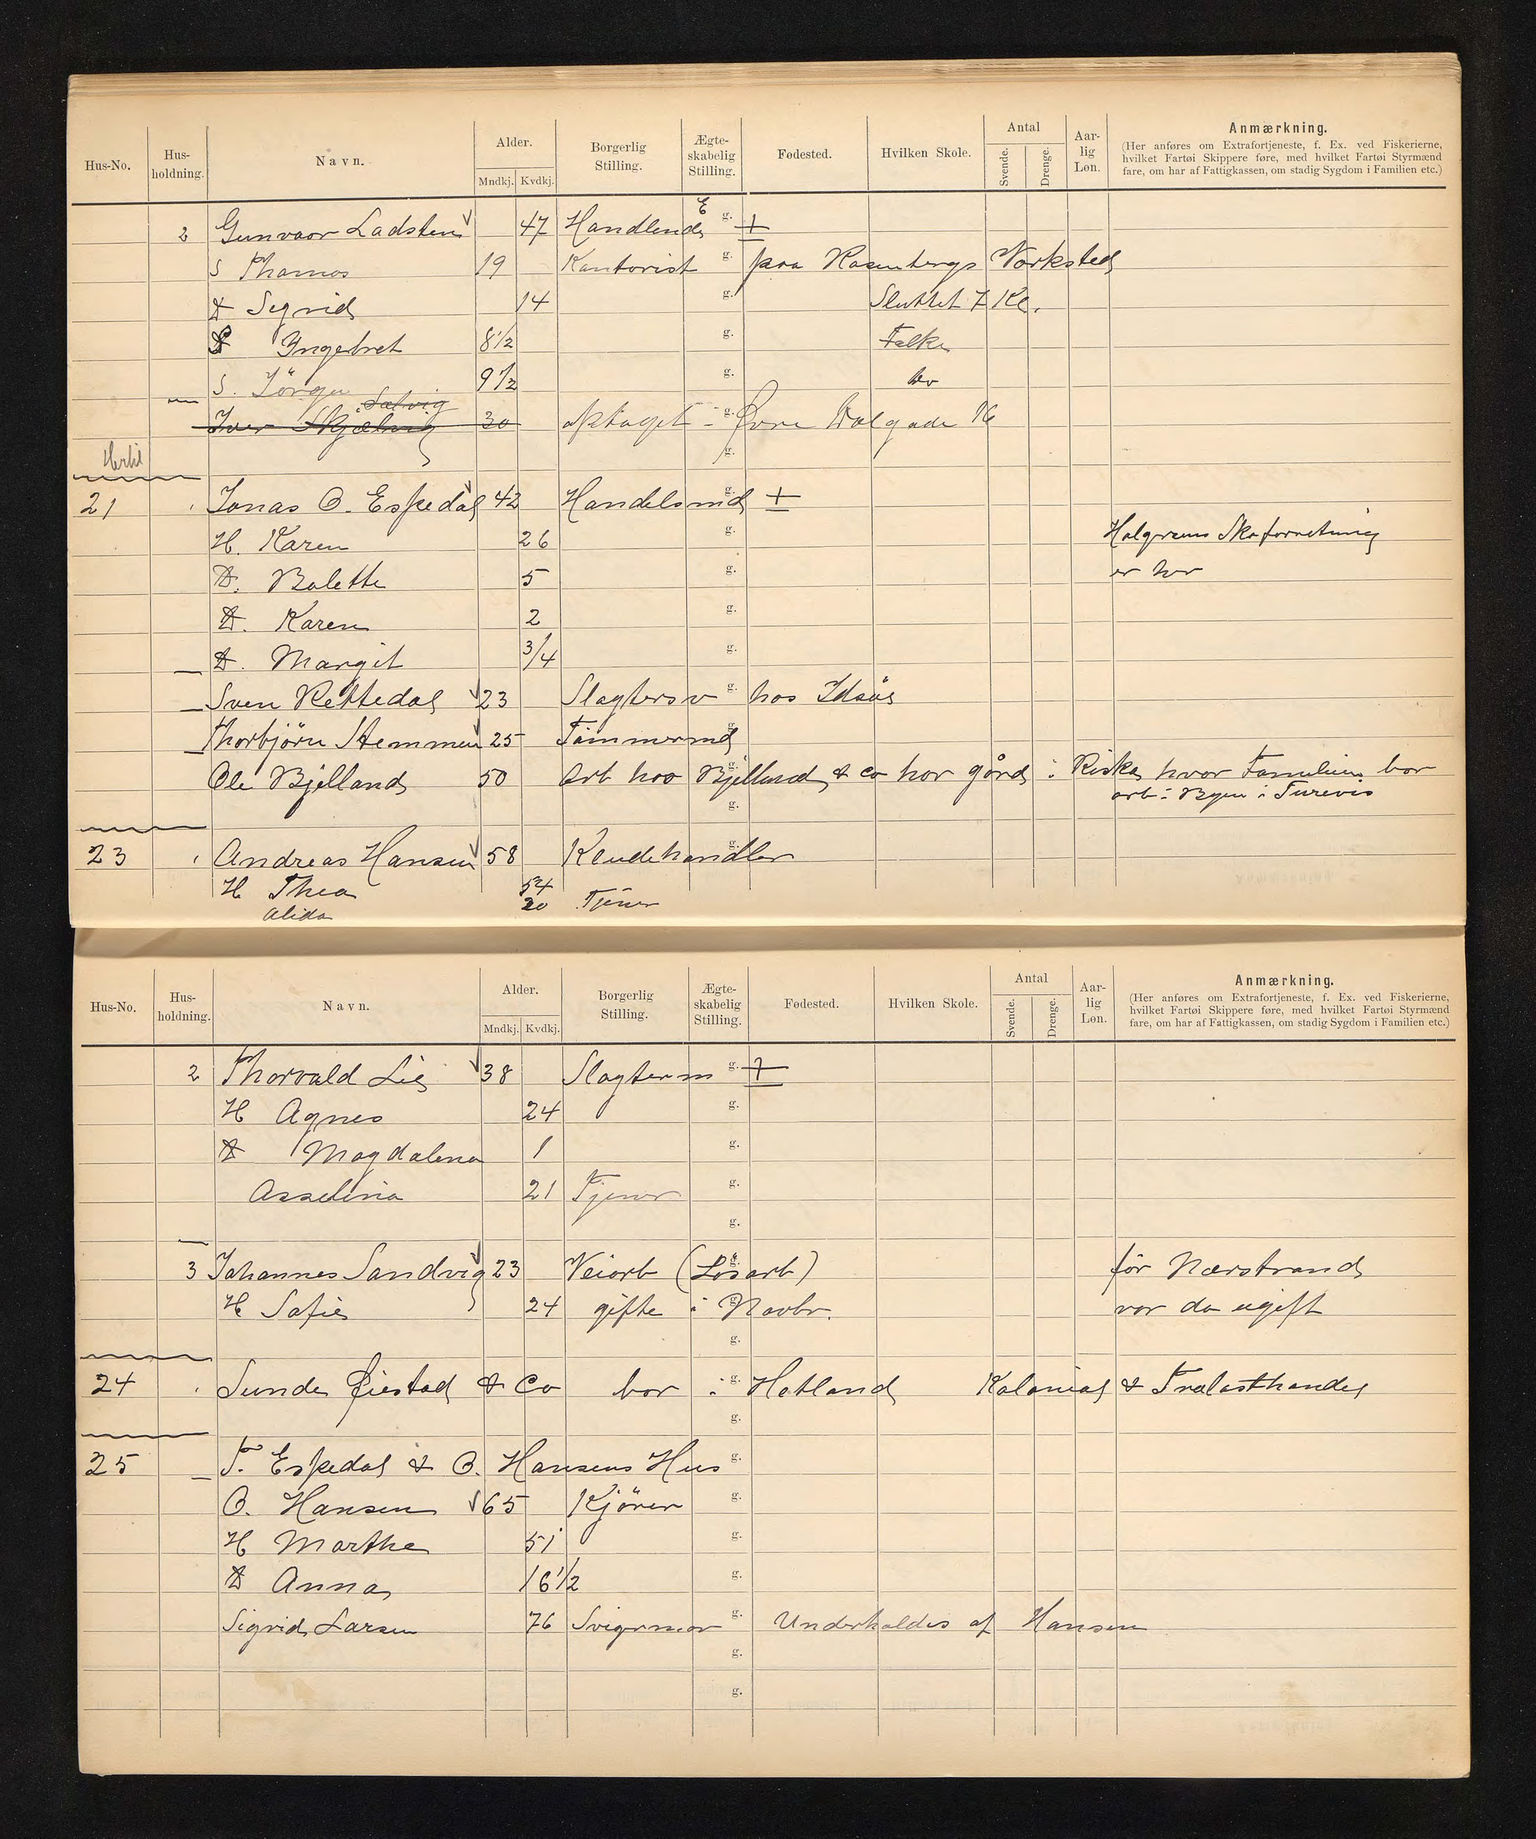 Hus-No. Hus-holdning. Navn. Alder. Mndkj. Kvdkj. Borgerlig Stilling. Ægte-skabelig Stilling. Fødested. Hvilken Skole. Antal Svende. Drenge. Aar-lig Løn. Anmærkning.
(Her anføres om Extrafortjeneste, f. Ex. ved Fiskerierne,
hvilket Fartøi Skippere føre, med hvilket Fartøi Styrmænd
fare, om har af Fattigkassen, om stadig Sygdom i Familien etc.)
2 Gunvaor Ladsten 47 Handlende E g. +
S Thomas 19 Kontorist g. paa Rosenbergs Værksted
D Sigrid 14 g. Sluttet 7 Kl.
S Ingebret 8 1/2 g. Folke
S. Jörgen 9 1/2 g. do
Solvig
Iver Skjælvig 30 optaget - g. Øvre Holgade 16
g.
Hertil
21 Jonas O. Espedal 42 Handelsmd g. +
H. Karen 26 g. Holgersens Skoforretning
D. Bolette 5 g. er her
D. Karen 2 g.
D. Margit 3/4 g.
Sven Rettedal 23 Slagtersv g. hos Idsøe
Thorbjörn Stemmen 25 Tömmermd g.
Ole Bjelland 50 Arb hos Bjelland & Co har gård i Riska hvor Familien bor
g. arb i Byen i
23 Andreas Hansen 58 Kludehandler g.
H Thea 54
Alida 20 Tjener
Hus-No. Hus-holdning. Navn. Alder. Mndkj. Kvdkj. Borgerlig Stilling. Ægte-skabelig Stilling. Fødested. Hvilken Skole. Antal Svende. Drenge. Aar-lig Løn. Anmærkning.
(Her anføres om Extrafortjeneste, f. Ex. ved Fiskerierne,
hvilket Fartøi Skippere føre, med hvilket Fartøi Styrmænd
fare, om har af Fattigkassen, om stadig Sygdom i Familien etc.)
2 Thorvald Lie 38 Slagterm g. +
H Agnes 24 g.
D Magdalena 1 g.
Asselina 21 Tjener g.
g.
3 Johannes Sandvig 23 Veiarb (Løsarb) g. för Nærstrand
H Sofie 24 gifte i Novbr. g. var da ugift
g.
24 Sunde Øiestad & Co bor i g. Hetland Kolonial & Trælasthandel
g.
25 T. Espedal & O. Hansens Hus g.
O. Hansen 65 Kjörer g.
H Marthe 51 g.
D Anna 16 1/2 g.
Sigrid Larsen 76 Svigermor g. Underholdes af Hansen
g.
g.